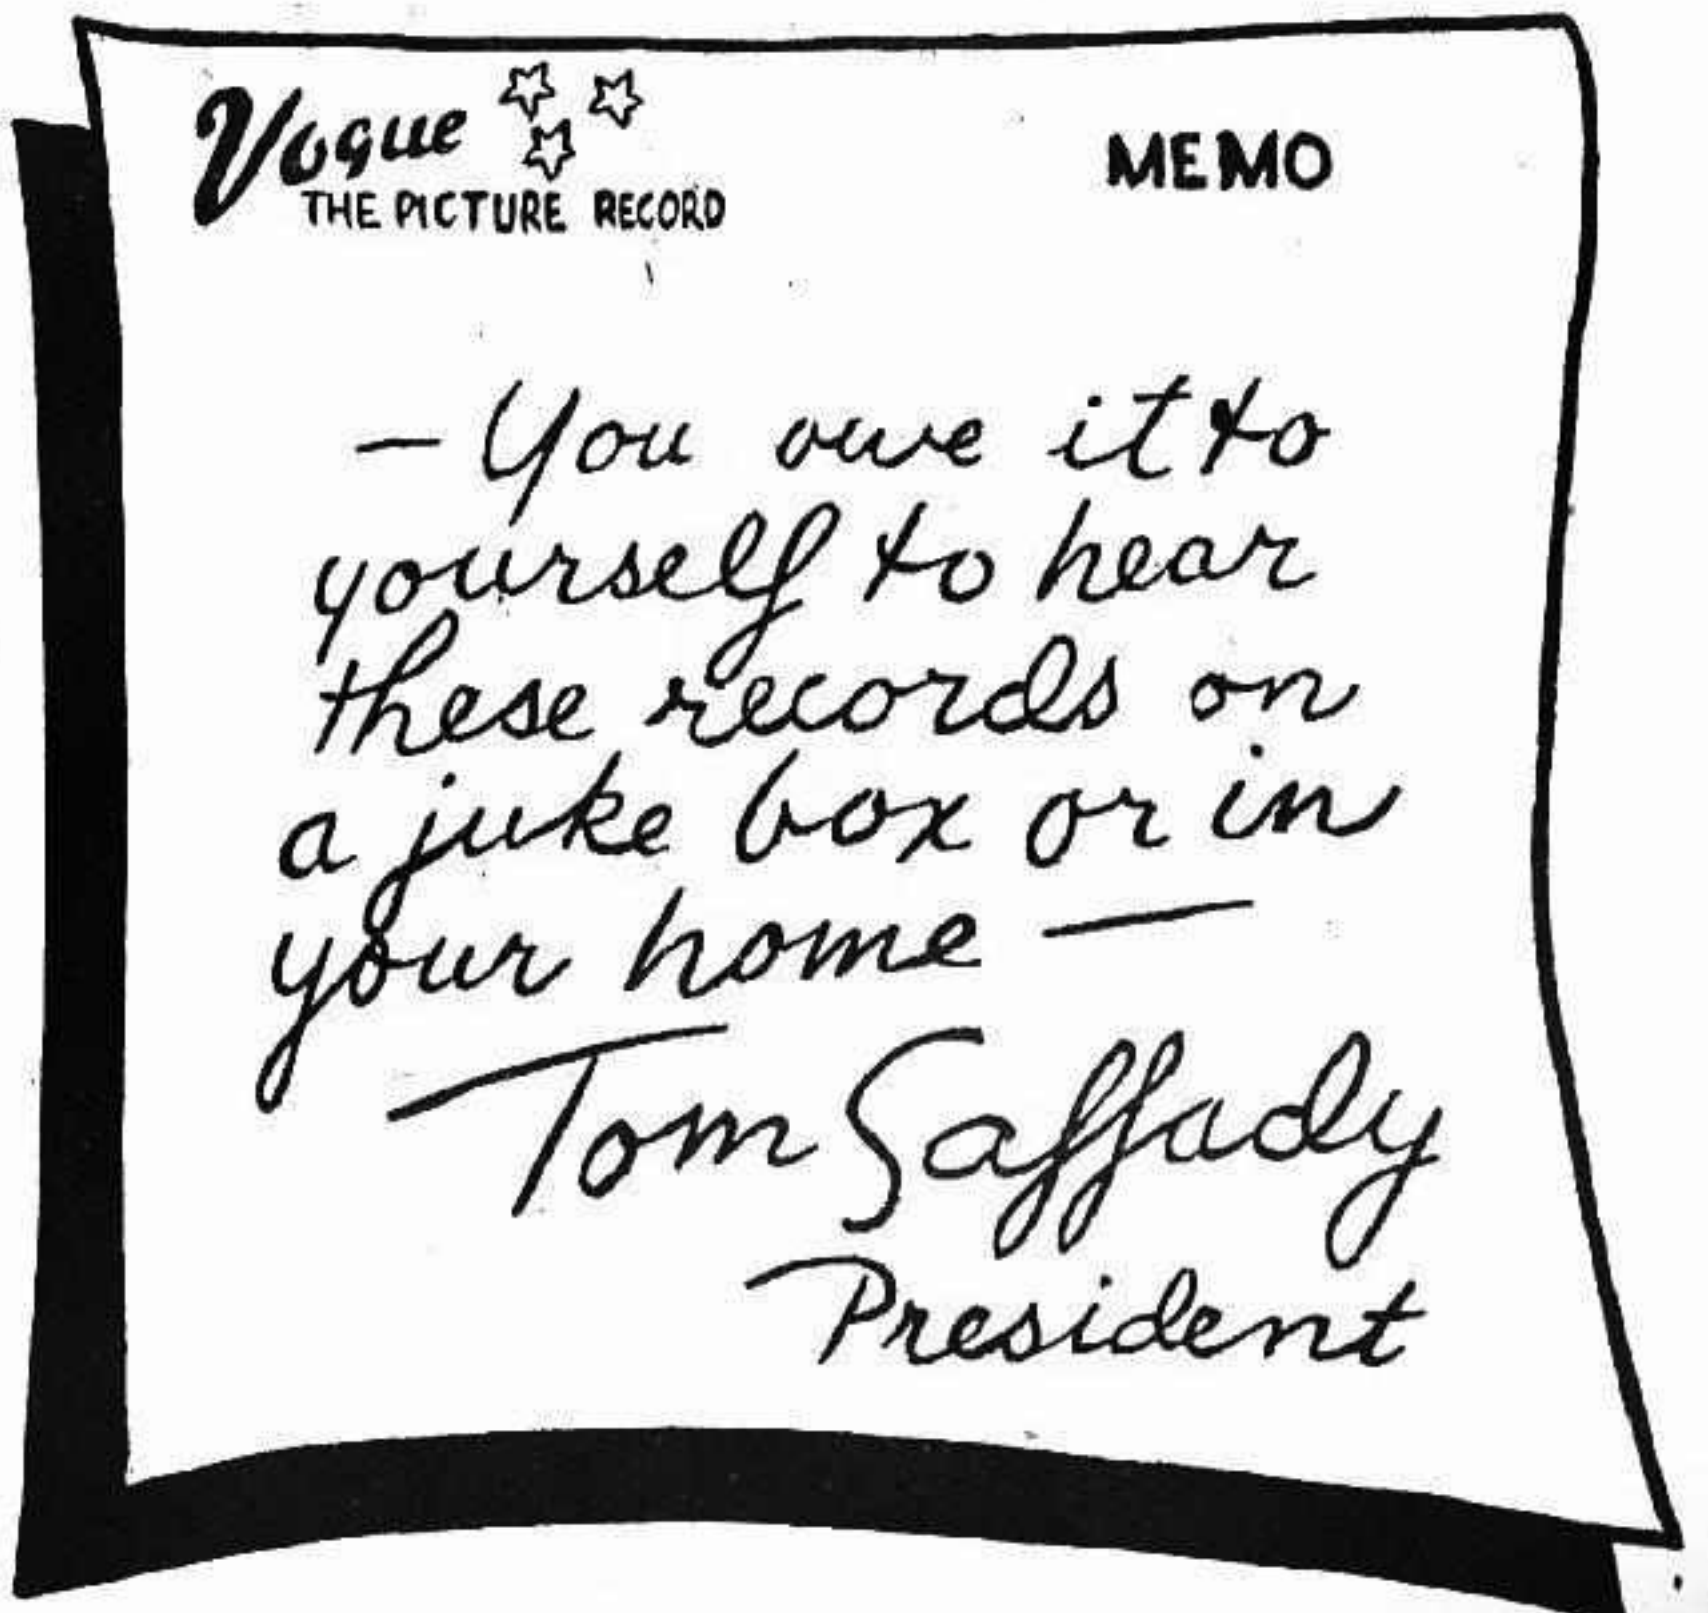 Vogue
THE PICTURE RECORD
MEMO
— You owe it to
yourself to hear
these records on
a juke box or in
your home —
Tom Saffady
President